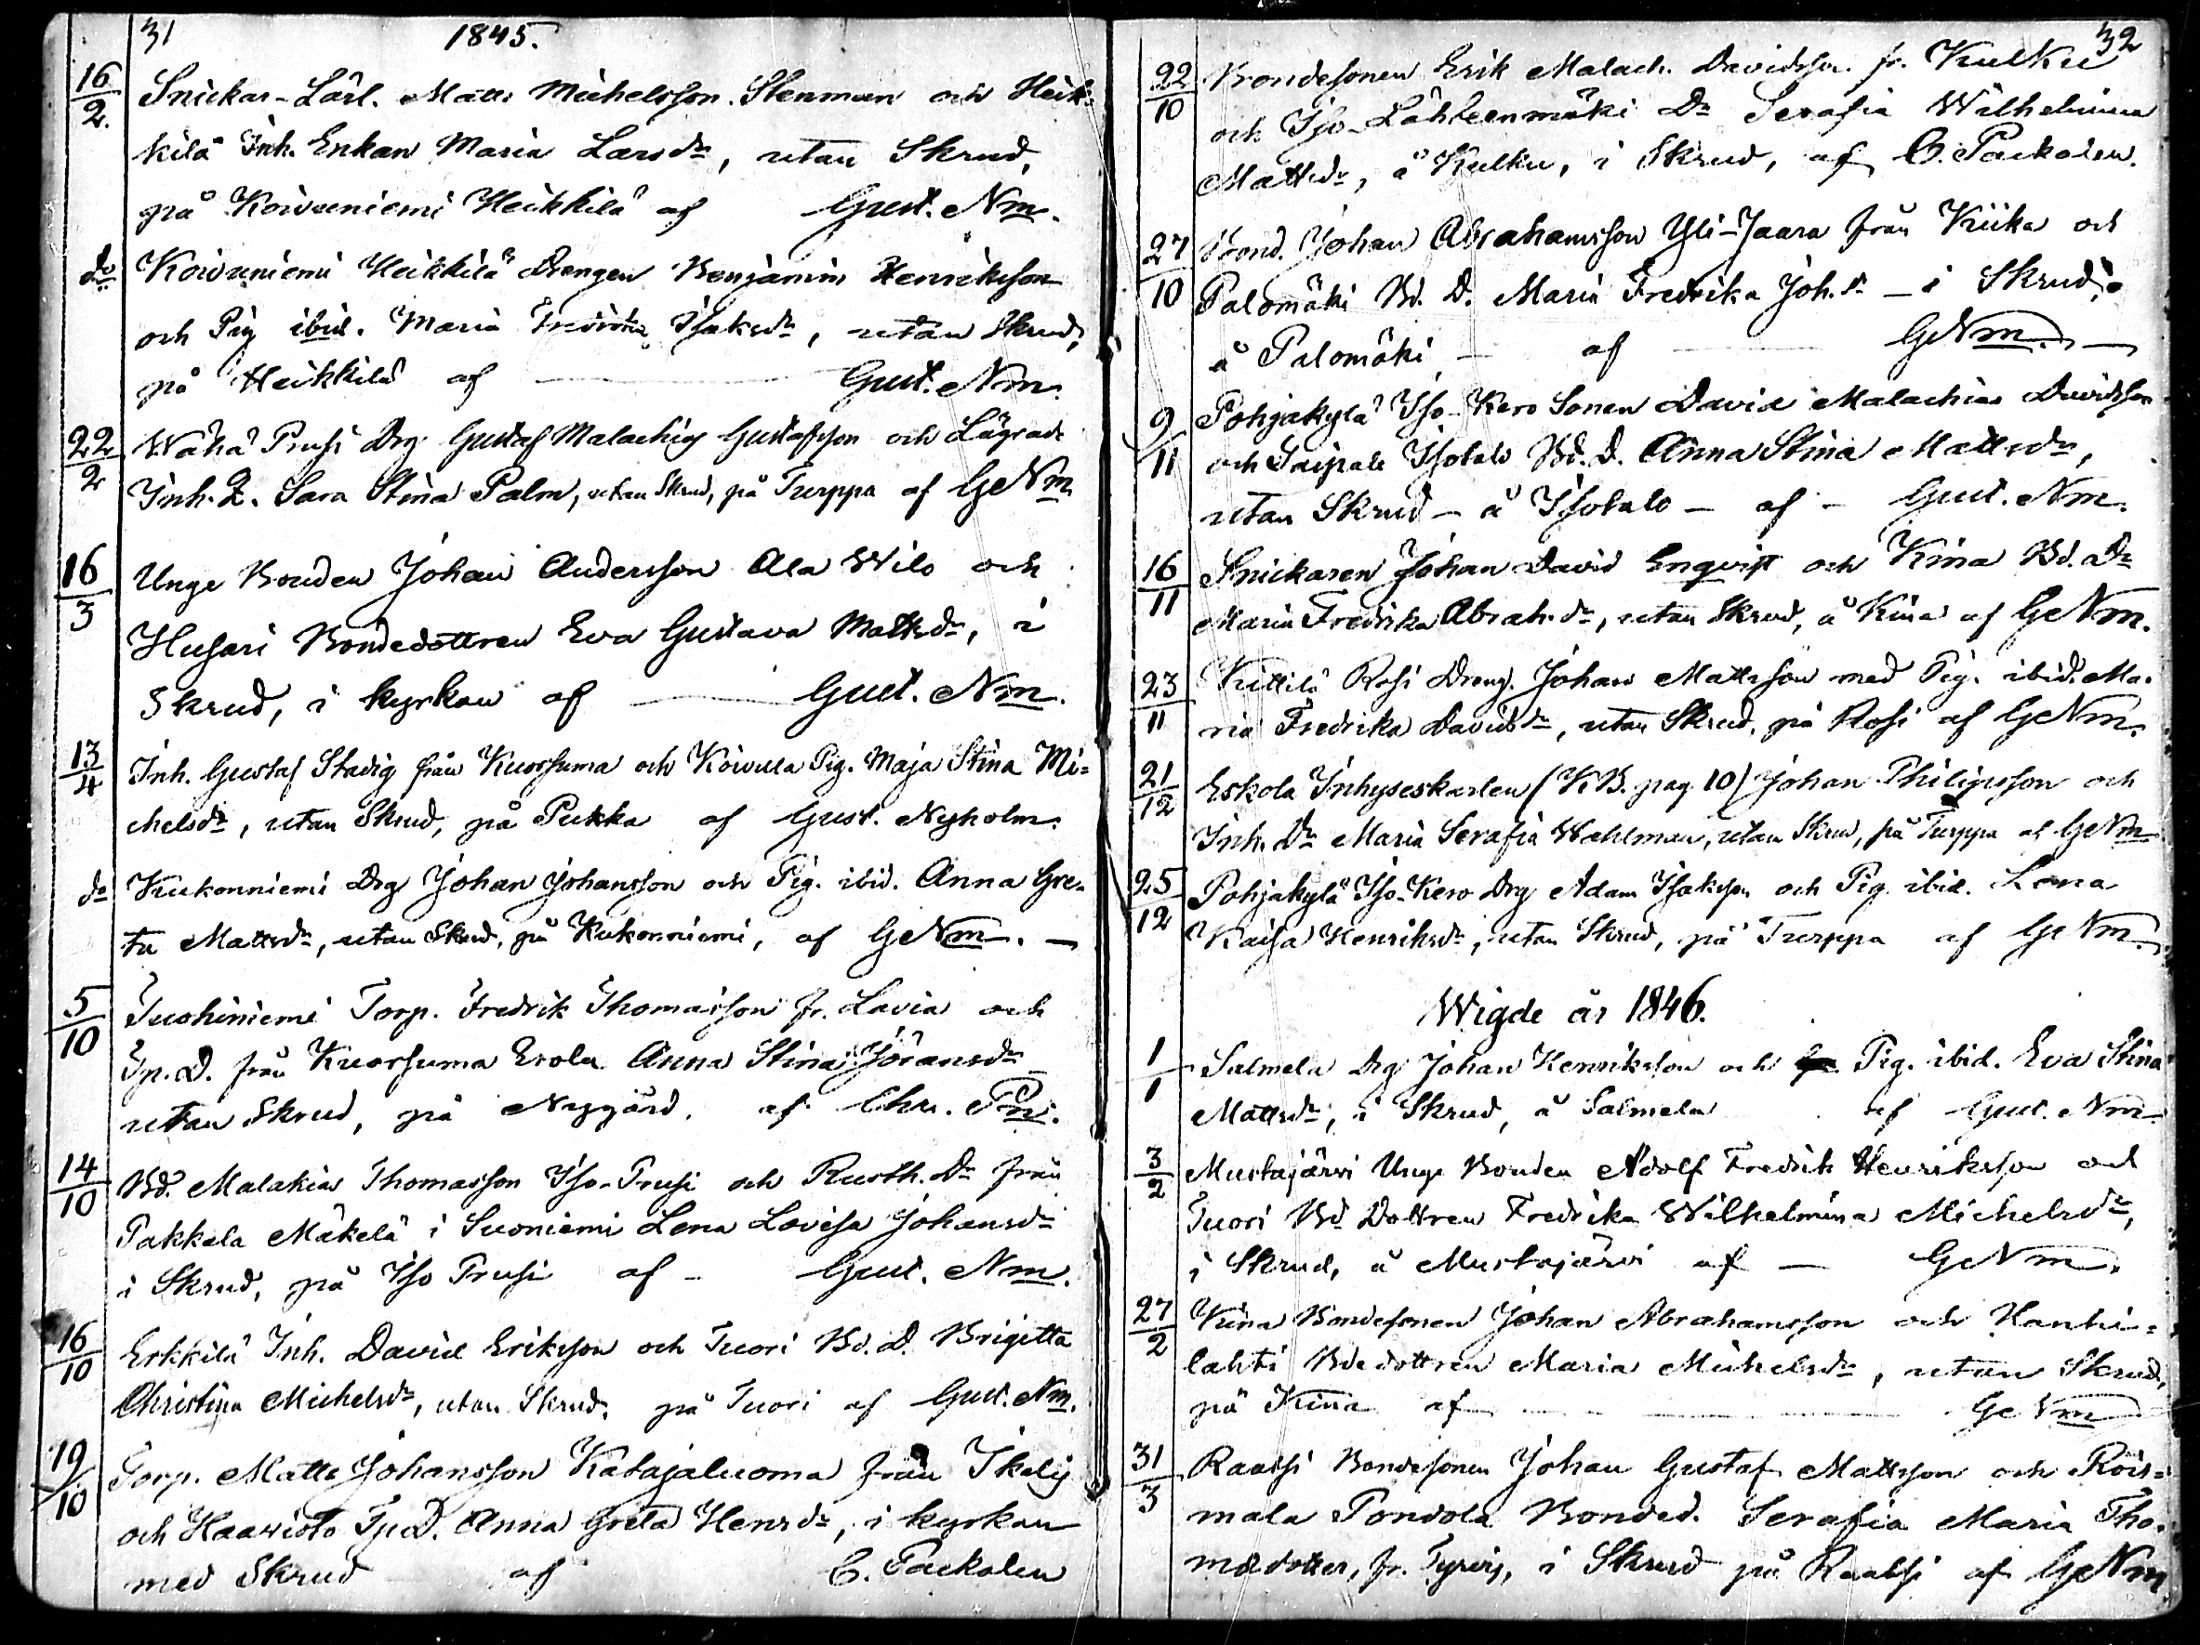 31 1845.
16/2. Snickar-Lärl. Matts Michelsson Stenman och Heik-
kilä Inh. Enkan Maria Larsdr, utan Skrud,
på Koivuniemi Heikkilä af Gust. Nm.
do Koivuniemi Heikkilä Drengen Benjamin Henriksson
och Pig ibid. Maria Fredrika Isaksdr, utan Skrud,
på Heikkilä af Gust. Nm.
22/2 Wähä Prusi Drg Gustaf Malachias Gustafsson och
Inh. Sara Stina Palm, utan Skrud, på Turppa af GeNm
16/3 Unge Bonden Johan Andersson Ala Wilo och
Husari Bondedottren Eva Gustava Mattsdr, i
Skrud, i kyrkan af Gust. Nm.
13/4 Inh. Gustaf Stadig från Kuorsuma och Koivula Pig. Maja Stina Mi-
chelsdr, utan Skrud, på Pukka af Gust. Nyholm.
do Kukonniemi Drg Johan Johansson och Pig. ibid. Anna Gre-
ta Mattsdr, utan Skrud, på Kukonniemi, af GeNm. —
5/10 Tuohiniemi Torp. Fredrik Thomasson fr. Lavia och
Tp. D. från Kuorsuma Erola Anna Stina Jöransdr
utan Skrud, på Nygård. af Chr. Pn.
14/10 Bd. Malakias Thomasson Iso-Prusi och Rusth. Dr från
Pakkala Mäkelä i Suoniemi Lena Lovisa Johansdr
i Skrud, på Iso Prusi af - Gust. Nm.
16/10 Erkkilä Inh. David Eriksson och Tuori Bd. D. Brigitta
Christina Michelsdr, utan Skrud, på Tuori af Gust. Nm.
19/10 Torp. Matts Johansson Katajaluoma från Ikalis
och Haavisto Tp. D. Anna Greta Henrsdr, i kyrkan
med Skrud af C. Packalen
32
22/10 Bondesonen Erik Malach. Davidsson fr. Kulku
och Iso-Lähteenmäki Dr Serafia Wilhelmina
Mattsdr, å Kulku, i Skrud, af C. Packalen.
27/10 Bond. Johan Abrahamsson Yli-Jaara från Kiika och
Palomäki Bd. D. Maria Fredrika Joh.dr — i Skrud,
å Palomäki — af — GeNm. —
9/11 Pohjakylä Iso-Kero Sonen David Malachias Davidsson
och Saipale Isotalo Bd. D. Anna Stina Mattsdr,
utan Skrud — å Isotalo — af - Gust. Nm.
16/11 Snickaren Johan David Enqvist och Kina Bd. Dr
Maria Fredrika Abrah.dr, utan Skrud, å Kina af GeNm.
23/11 Kuttilä Rosi Dreng. Johan Mattsson med Pig. ibid. Ma-
ria Fredrika Davidsdr, utan Skrud, på Rosi af GeNm.
21/12 Eskola Inhyseskarlen (KB. pag 10) Johan Philipsson och
Inh. Dr Maria Serafia Wahlman, utan Skrud, på Turppa af GeNm
25/12 Pohjakylä Iso-Kero Drg Adam Isaksson och Pig. ibid. Lena
Kaisa Henriksdr, utan Skrud, på Turppa af GeNm.
Wigde år 1846.
1/1 Salmela Drg Johan Henriksson och Pig. ibid. Eva Stina
Mattsdr, i Skrud, å Salmela af Gust. Nm.
3/2 Mustajärvi Unge Bonden Adolf Fredrik Henriksson och
Tuori Bd Dottren Fredrika Wilhelmina Michelsdr,
i Skrud, å Mustajärvi af — GeNm.
27/2 Kiina Bondesonen Johan Abrahamsson och Hanhi-
lahti Bdedottren Maria Michelsdr, utan Skrud,
på Kiina af GeNm
31/3 Raatsi Bondesonen Johan Gustaf Mattsson och Rois-
mala Pondola Bonded. Serafia Maria Tho-
madotter, fr. Tyrvis, i Skrud på Raatsi af GeNm